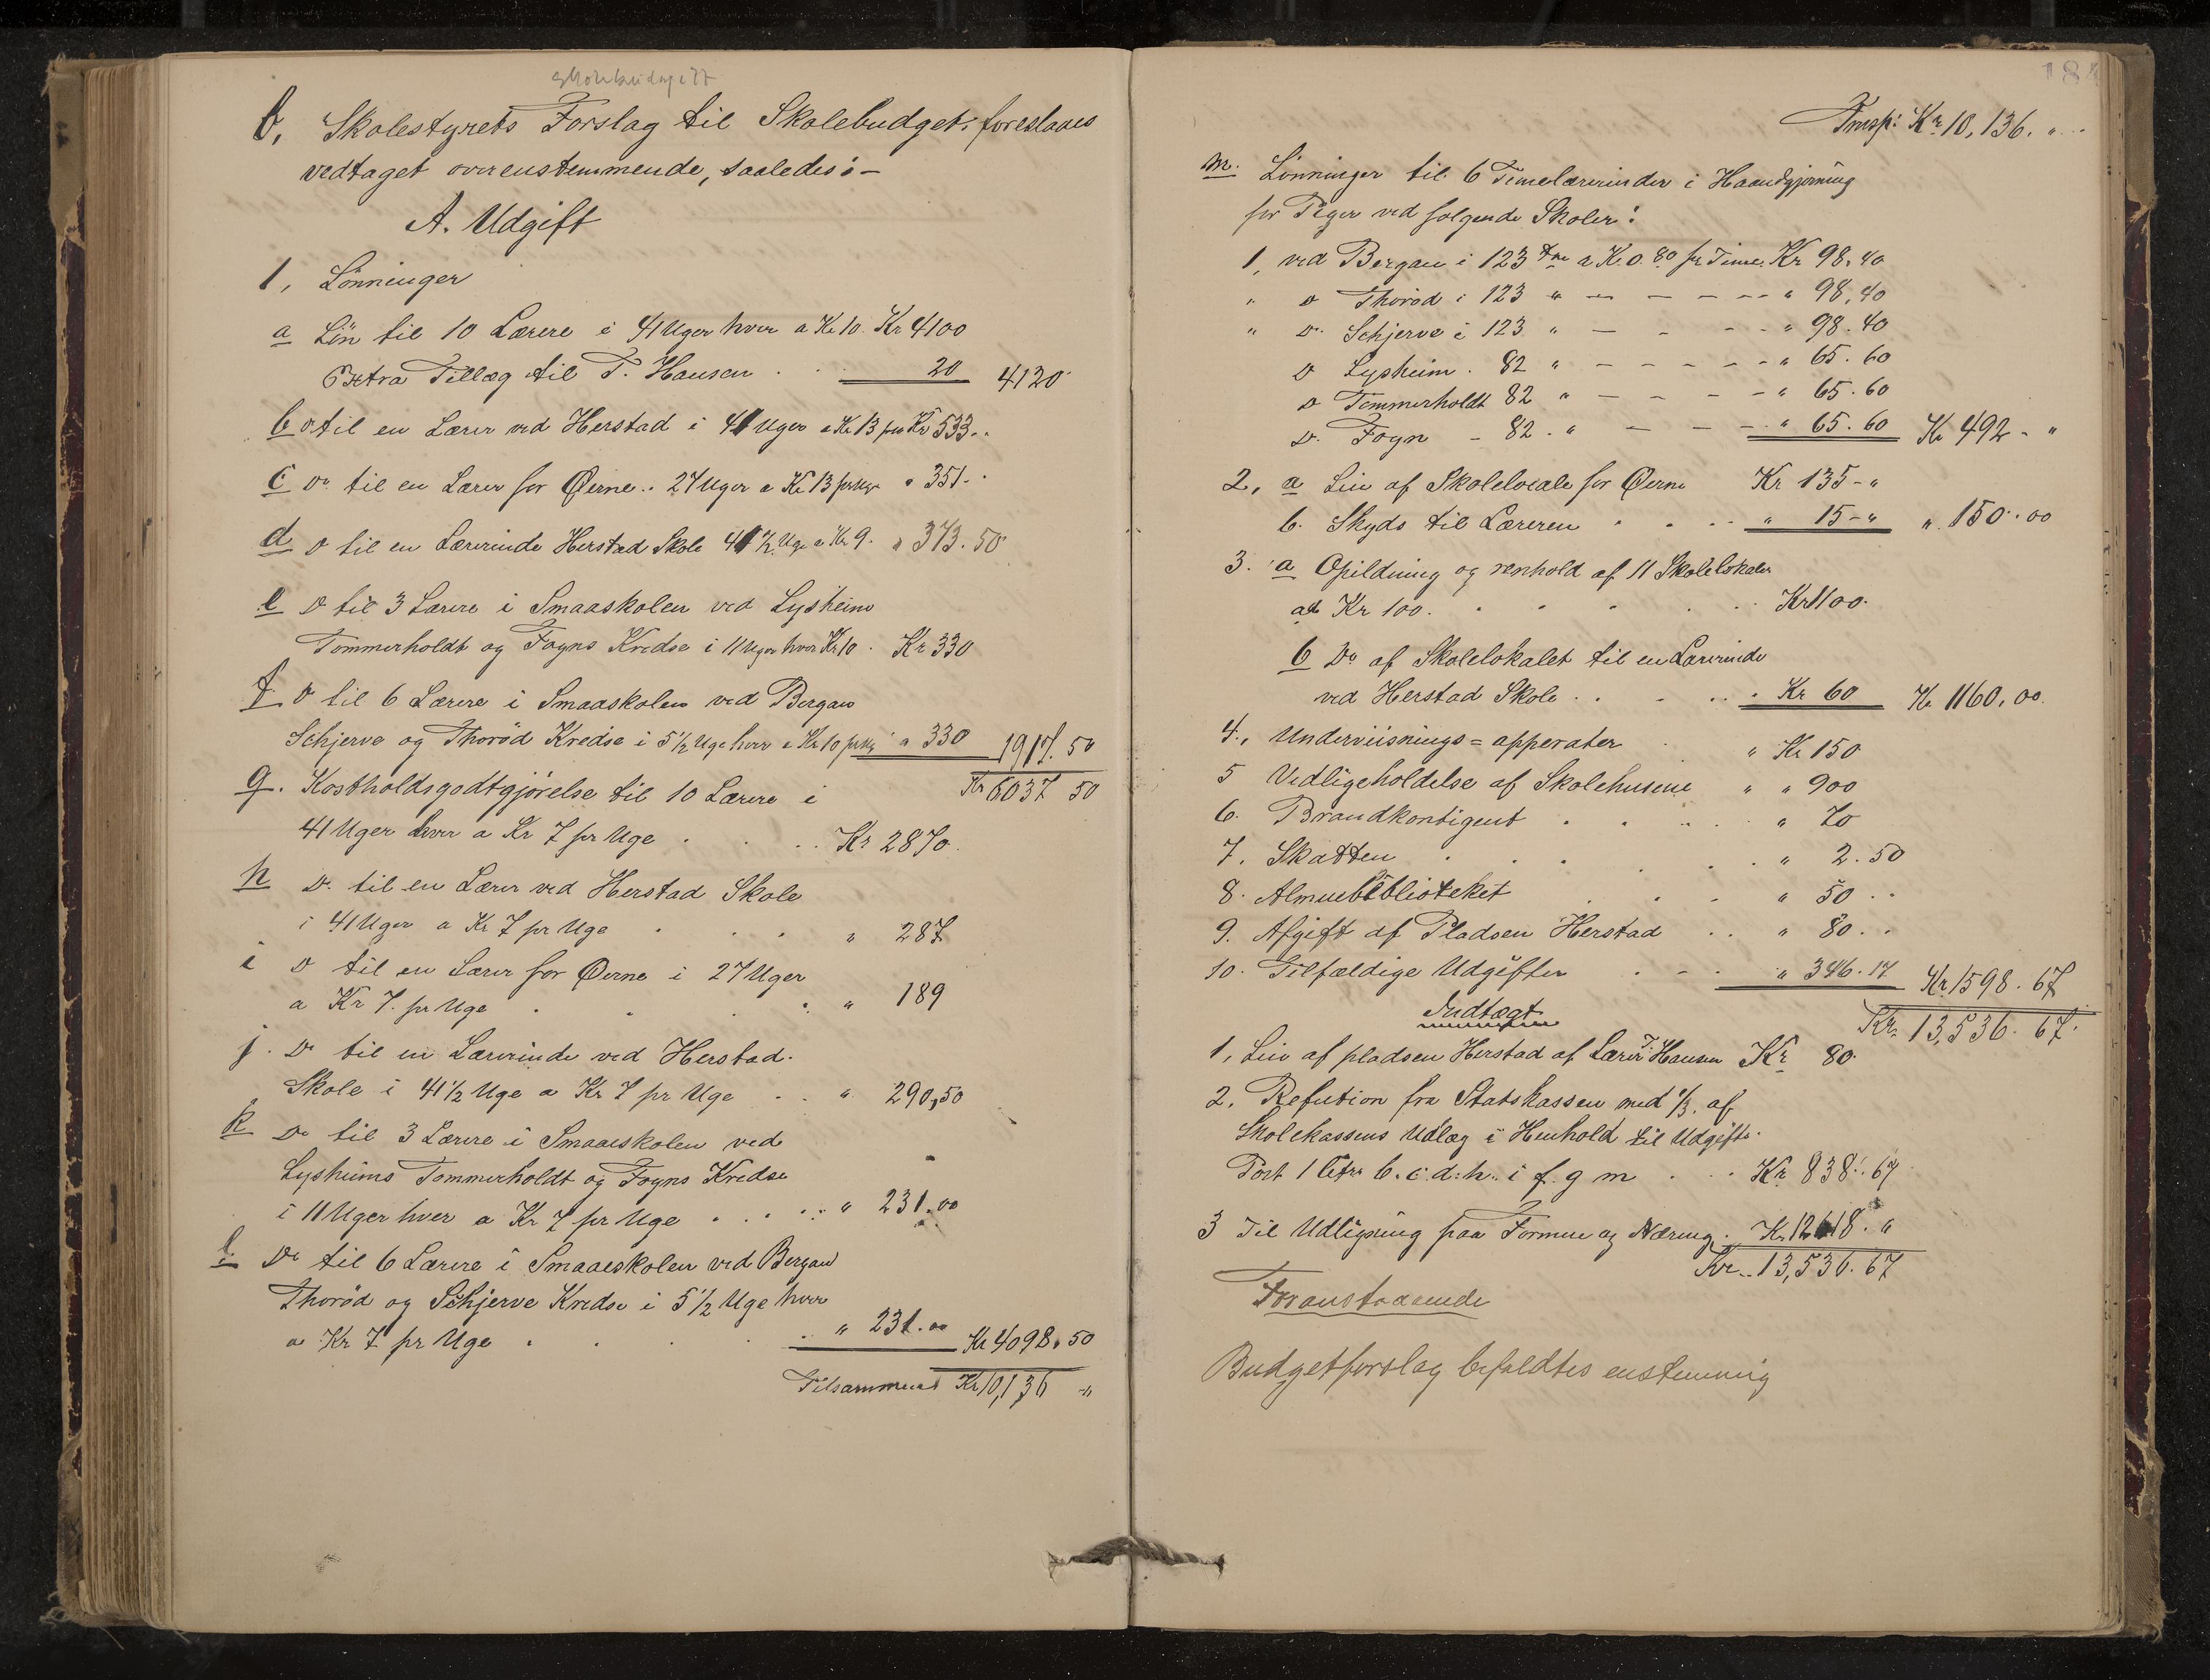 Skolebudgett
b, Skolestyrets Forslag til Skolebudget: foreslaaes
vedtaget overenstemmende, saaledes:-
A. Udgift
1, Lönninger
a Lön til 10 Lærere i 41 Uger hver a Kr 10. Kr 4100
Extra Tillæg til T. Hansen . . 20 4120
b Do til en Lærer ved Herstad i 41 Uger a Kr 13 pr Kr 533..
c Do til en Lærer for Øerne.. 27 Uger a Kr 13 pr Uge " 351-.
d Do til en Lærerinde Herstad Skole 41 1/2 Uge a Kr 9. " 373.50
e Do til 3 Lærere i Smaaskolen ved Lysheim
Tommerholdt og Foyns Kredse i 11 Uger hver Kr 10. Kr 330
f. Do til 6 Lærere i Smaaskolen ved Bergan
Schjerve og Thorød Kredse i 5 1/2 Uge hver a Kr 10 pr Uge " 330 1917.50
Kr 6037 50
g. Kostholdsgodtgjørelse til 10 Lærere i
41 Uger hver a Kr 7 pr Uge . . . . Kr 2870.
h Do. til en Lærer ved Herstad Skole
i 41 Uger a Kr 7 pr Uge . . . " 287
i Do til en Lærer for Øerne i 27 Uger
a Kr 7. pr Uge . . . " 189
j. Do til en Lærerinde ved Herstad.
Skole i 41 1/2 Uge a Kr 7 pr Uge . . " 290,50
k Do til 3 Lærere i Smaaeskolen ved
Lysheims Tommerholdt og Foyns Kredse
i 11 Uger hver a Kr 7 pr Uge . . . . " 231.00
l. Do til 6 Lærere i Smaaeskolen ved Bergan
Thorød og Schjerve Kredse i 5 1/2 Uge hver
a Kr 7 pr Uge . . . . " 231.00 Kr 4098.50
Tilsammens Kr 10,136 -"
184
Trnsp: Kr 10,136. "
m. Lönninger til 6 Timelærerinder i Haandgjerning
for Piger ved følgende Skoler:
1, ved Bergan i 123 Tme a K. 0.80 pr Time. Kr 98.40
" Do Thorød i 123 " - - - - - " 98,40
" Do. Schjerve i 123 " - - - - " 98.40
Do Lysheim . 82 " - - - - - " 65.60
Do Tommerholdt 82 " - - - - " 65.60
Do. Foyn - 82. " - - - " 65.60 Kr 492 - "
2, a Leie af Skolelocale for Øerne Kr 135 - "
b. Skyds til Læreren . . . " 15 - " ". 150.00
3. a Opildning og renhold af 11 Skolelokaler
at Kr 100. . . . . . Kr 1100.
b Do af Skolelokalet til en Lærerinde
ved Herstad Skole . . . . Kr 60 Kr 1160,00.
4., Underviisnings = apperater . " Kr 150
5 Vedligeholdelse af Skolehusene " " 900
6. Brandkontigent . . . . " 70
7. Skatten . . . . . " 2.50
8. Almuebiblioteket . . . " 50 ..
9. Afgift af Pladsen Herstad . . " 80..
10. Tilfældige Udgifter . - . " 346.17 Kr 1598.67
Kr. 13,536. 67.
Indtægt
1, Leie af pladsen Herstad af Lærer T. Hansen Kr 80.
2. Refution fra Statskassen med 1/3. af
Skolekassens Udlæg i Henhold til Udgifts.
Post 1 Litr b. c. d: h.. i f. g m . . . Kr 838.67
3 Til Udligning paa Formue og Næring. Kr 12618. "
Kr.. 13,536.67
Foranstaaende
Budgetforslag befaldtes enstemmig